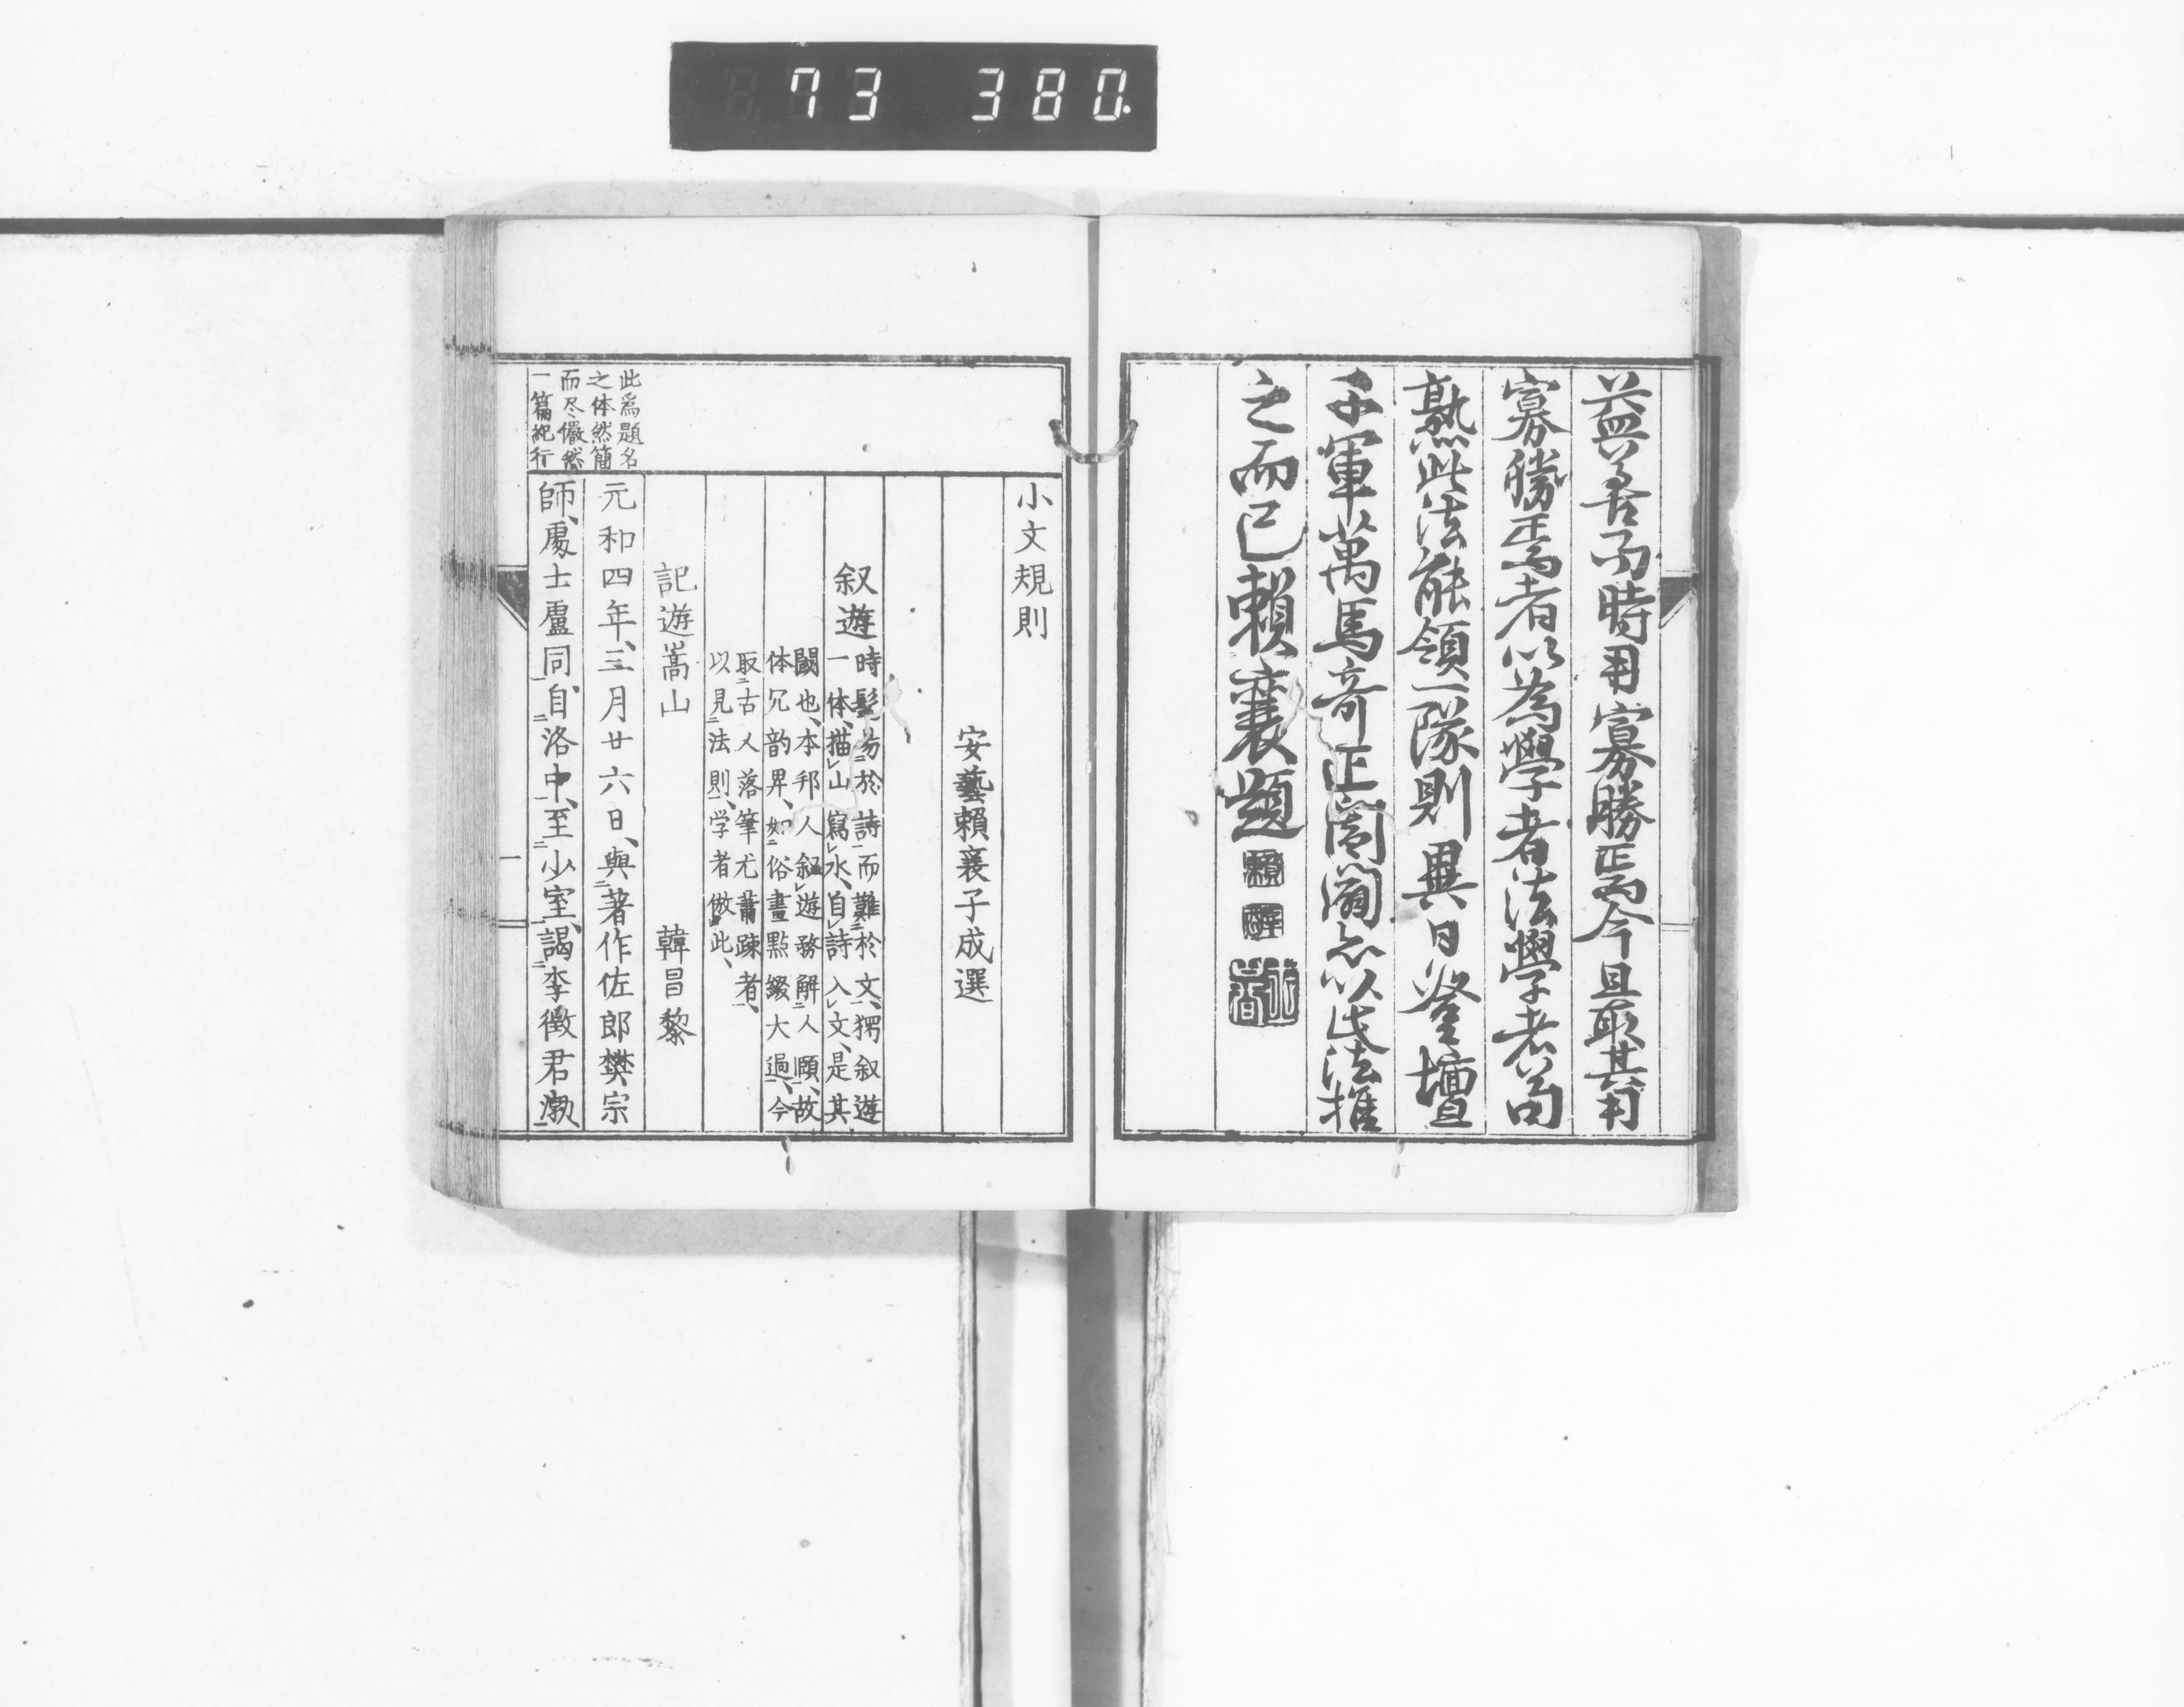 73 380.
益善而時用寡勝焉今且取其用
寡勝焉者以為學者法學者苟
熟此法能領一隊則異日登壇
千軍萬馬奇正闔闢亦以此法推
之而已賴襄題
小文規則
安藝賴襄子成選
叙遊
時髦易於詩而難於文、獨叙遊
一体、描山寫水、自詩入文、是其
闢也、本邦人叙遊務解人頤、故
体冗韵卑、如俗畫點綴大過、今
取古人落筆尤蕭疎者、
以見法則、学者倣此、
記遊嵩山
韓昌黎
此爲題名
之体然簡
而尽儼然
一篇紀行
元和四年、三月廿六日、與著作佐郎樊宗
師、處士盧同、自洛中、至少室、謁李徵君渤
一